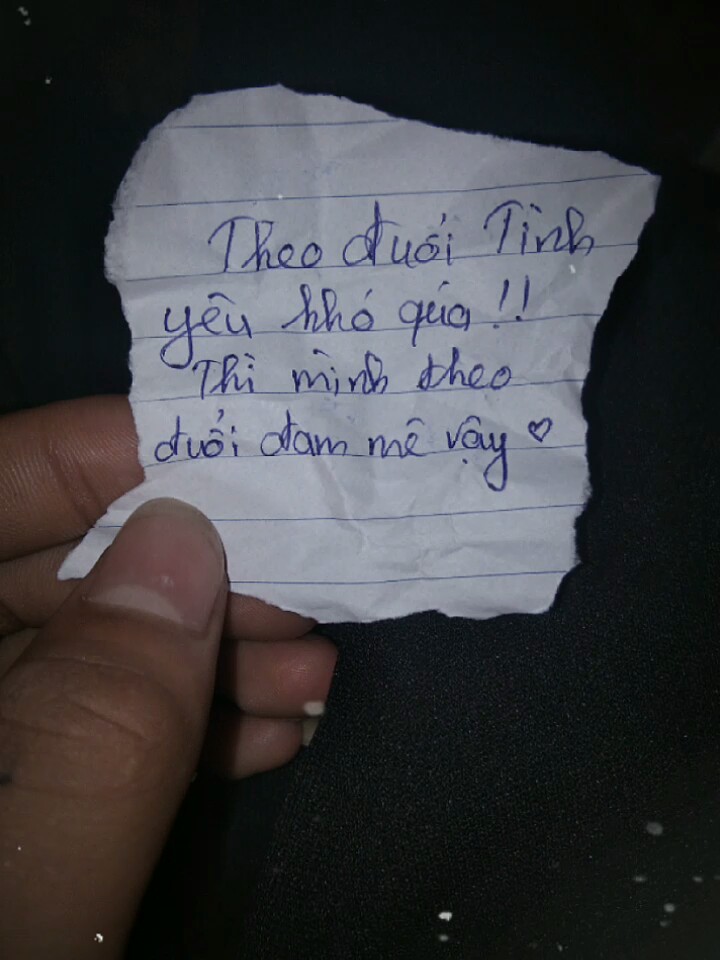 Theo đuổi Tình
yêu khó qúa !!
Thì mình theo
đuổi đam mê vậy ♡